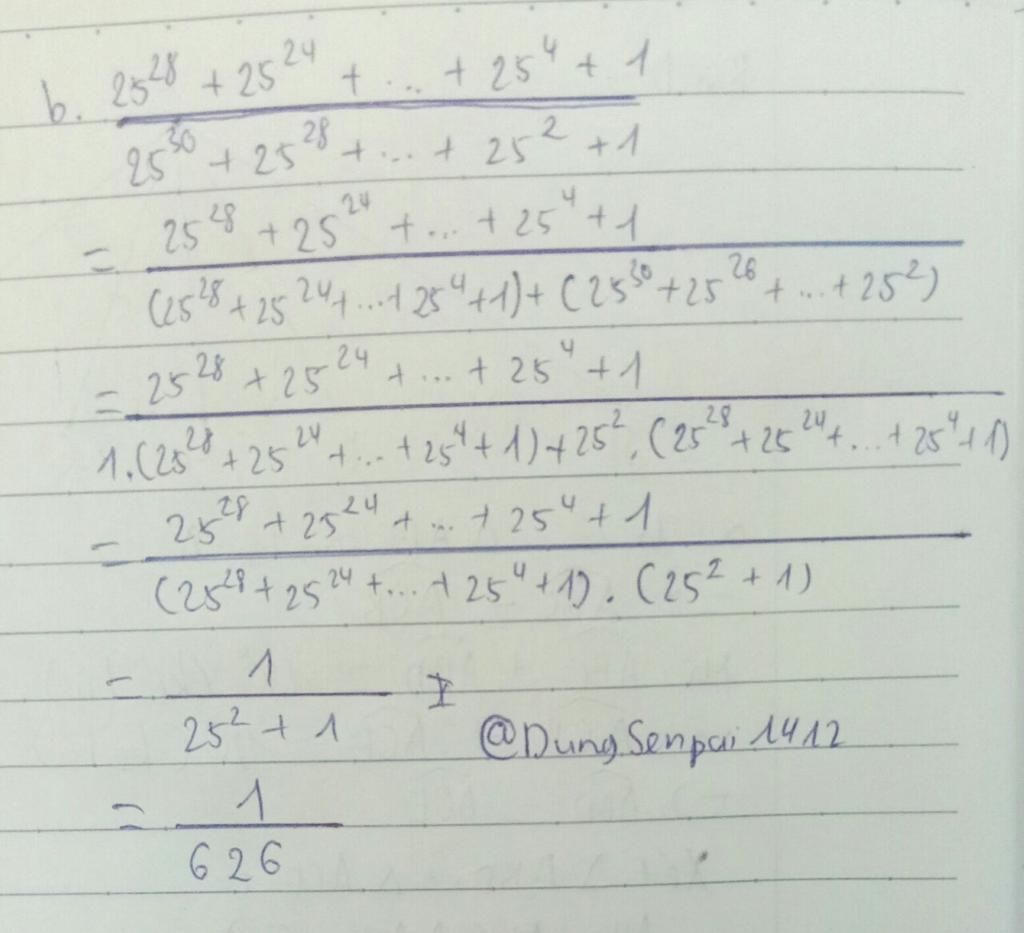 b. 25²⁸ + 25²⁴ + ... + 25⁴ + 1
25³⁰ + 25²⁸ + ... + 25² + 1
= 25²⁸ + 25²⁴ + ... + 25⁴ + 1
(25²⁸ + 25²⁴ + ... + 25⁴ + 1) + (25³⁰ + 25²⁶ + ... + 25²)
= 25²⁸ + 25²⁴ + ... + 25⁴ + 1
1.(25²⁸ + 25²⁴ + ... + 25⁴ + 1) + 25².(25²⁸ + 25²⁴ + ... + 25⁴ + 1)
= 25²⁸ + 25²⁴ + ... + 25⁴ + 1
(25²⁸ + 25²⁴ + ... + 25⁴ + 1).(25² + 1)
= 1
25² + 1
@DungSenpai1412
= 1
626